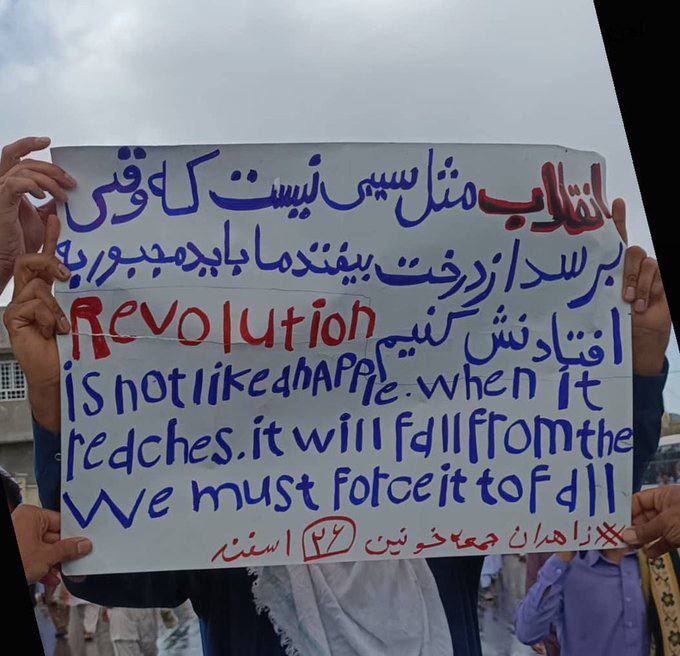 انقلاب مثل سیبی نیست که وقتی
برسد از درخت بیفتد ما باید مجبور به
افتادنش کنیم Revolution
is not like an APPle. when it
reaches. it will fall from the
We must force it to fall
#زاهدان جمعه خونین ۲۶ اسفند